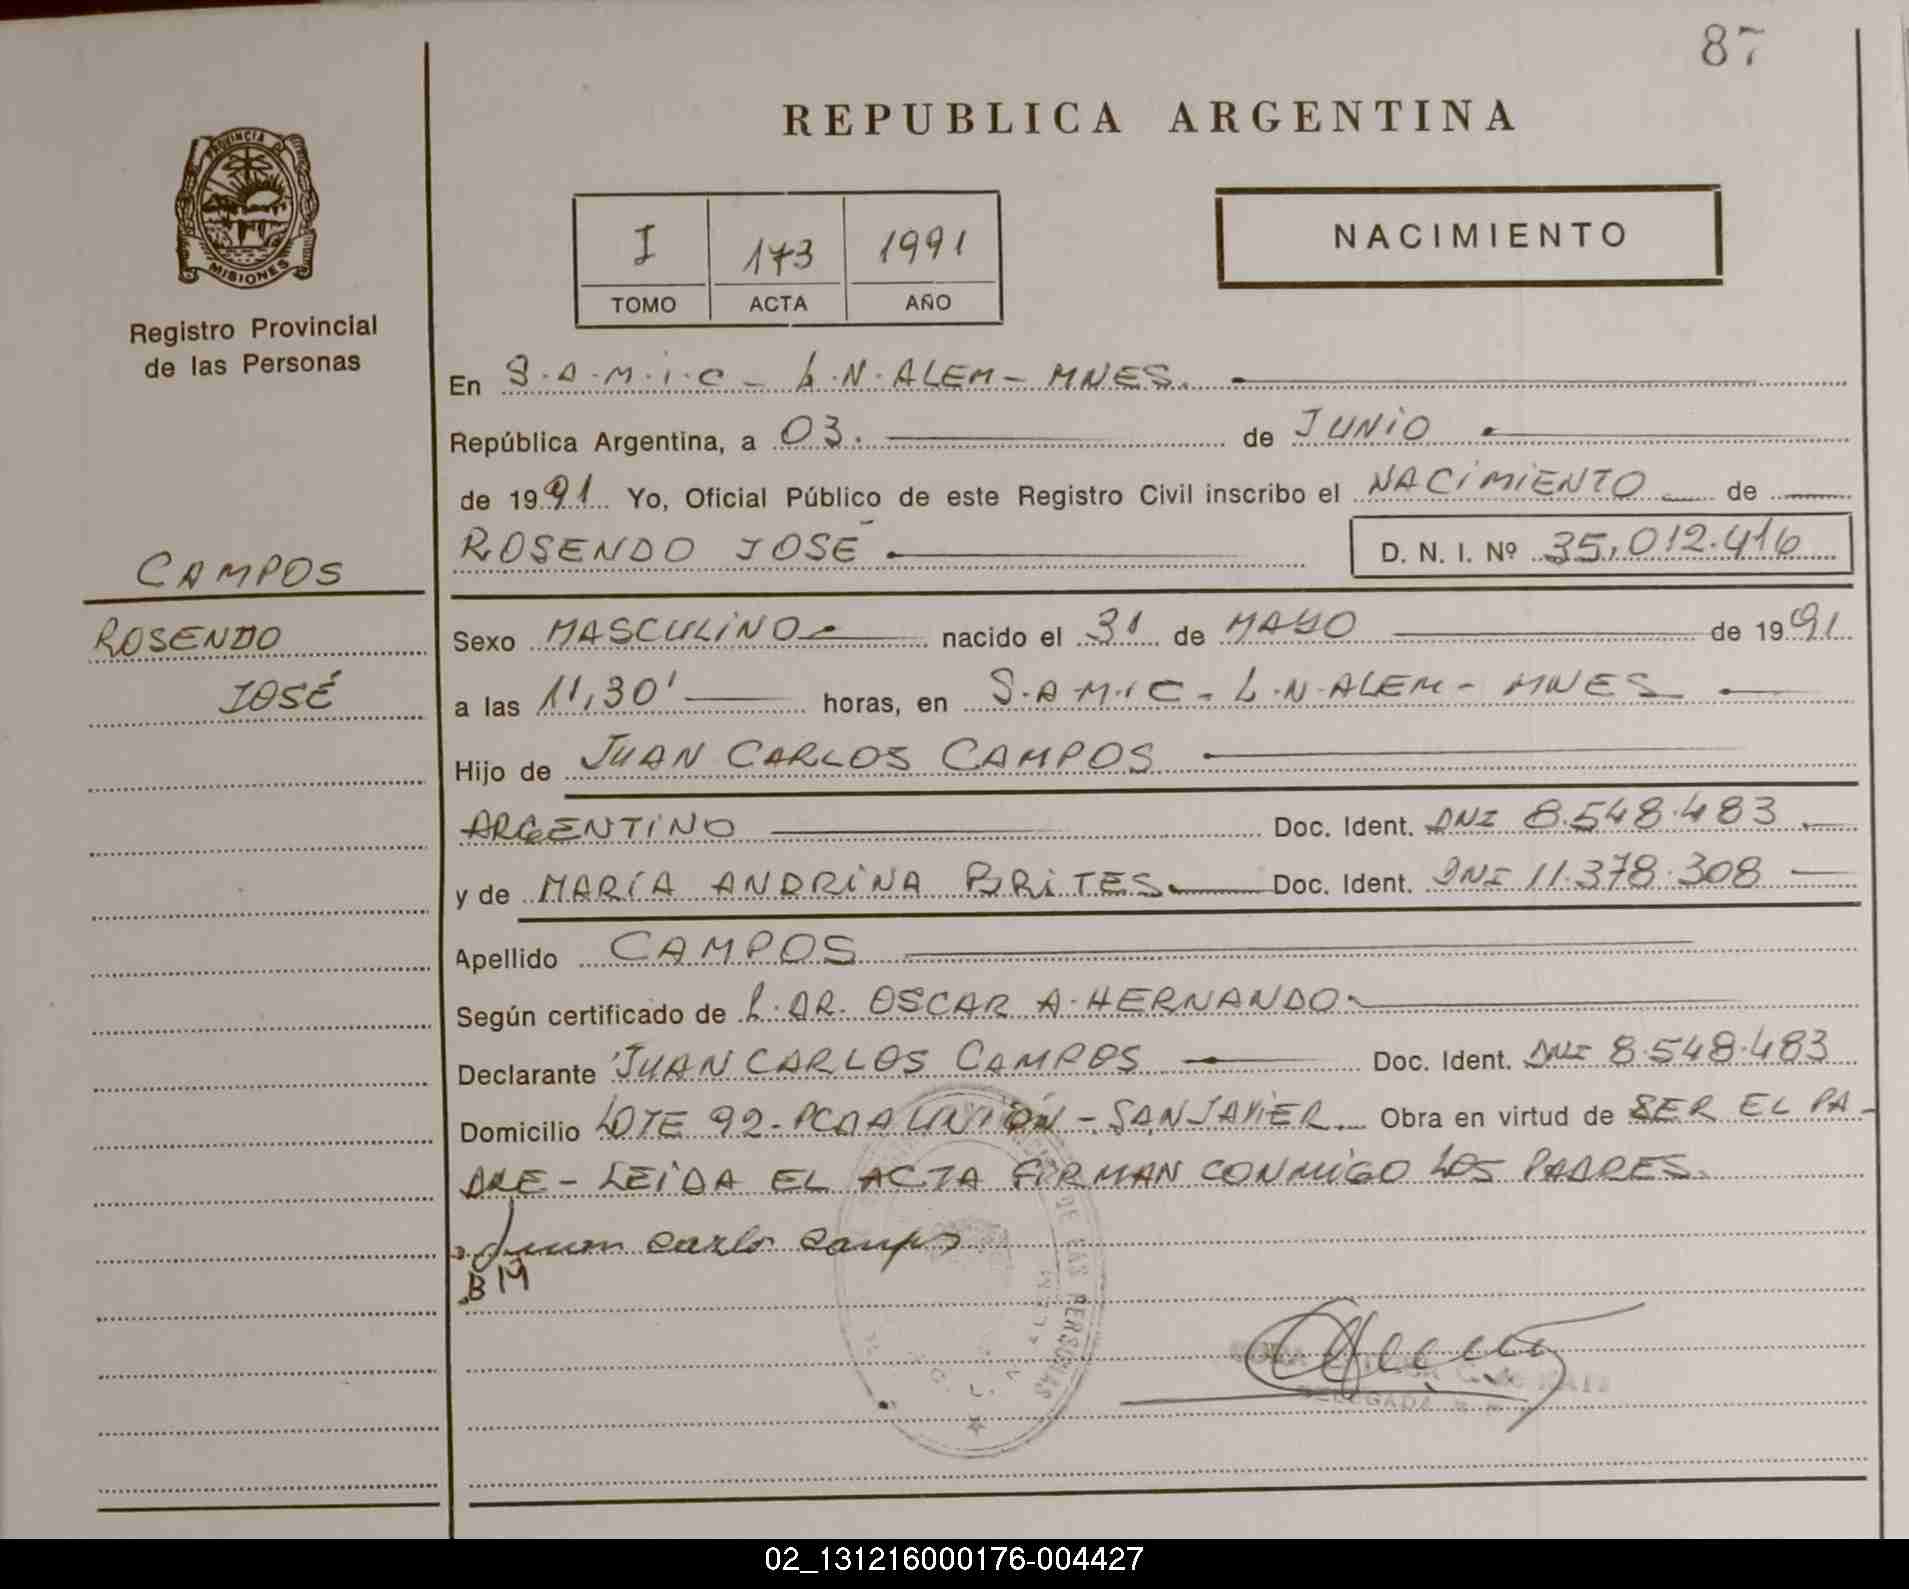 87
REPUBLICA ARGENTINA
PROVINCIA DE
MISIONES
Registro Provincial
de las Personas
I 173 1991
TOMO ACTA AÑO
NACIMIENTO
En S.A.M.I.C - L.N.ALEM - MNES.
República Argentina, a 03. de JUNIO
de 1991 Yo, Oficial Público de este Registro Civil inscribo el NACIMIENTO de
ROSENDO JOSÉ D. N. I. Nº 35.012.416
CAMPOS
ROSENDO
JOSÉ
Sexo MASCULINO nacido el 31 de MAYO de 1991
a las 11,30' horas, en S.A.M.I.C - L.N.ALEM - MNES
Hijo de JUAN CARLOS CAMPOS
ARGENTINO Doc. Ident. DNI 8.548.483
y de MARÍA ANDRINA BRITES Doc. Ident. DNI 11.378.308
Apellido CAMPOS
Según certificado de L. DR. OSCAR A. HERNANDO
Declarante JUAN CARLOS CAMPOS Doc. Ident. DNI 8.548.483
Domicilio LOTE 92 - PCDA UNIÓN - SAN JAVIER Obra en virtud de SER EL PA-
DRE - LEIDA EL ACTA FIRMAN CONMIGO LOS PADRES.
Juan Carlo Campo
BM
DE LAS PERSONAS
L. N. ALEM
DELEGADA
02_131216000176-004427